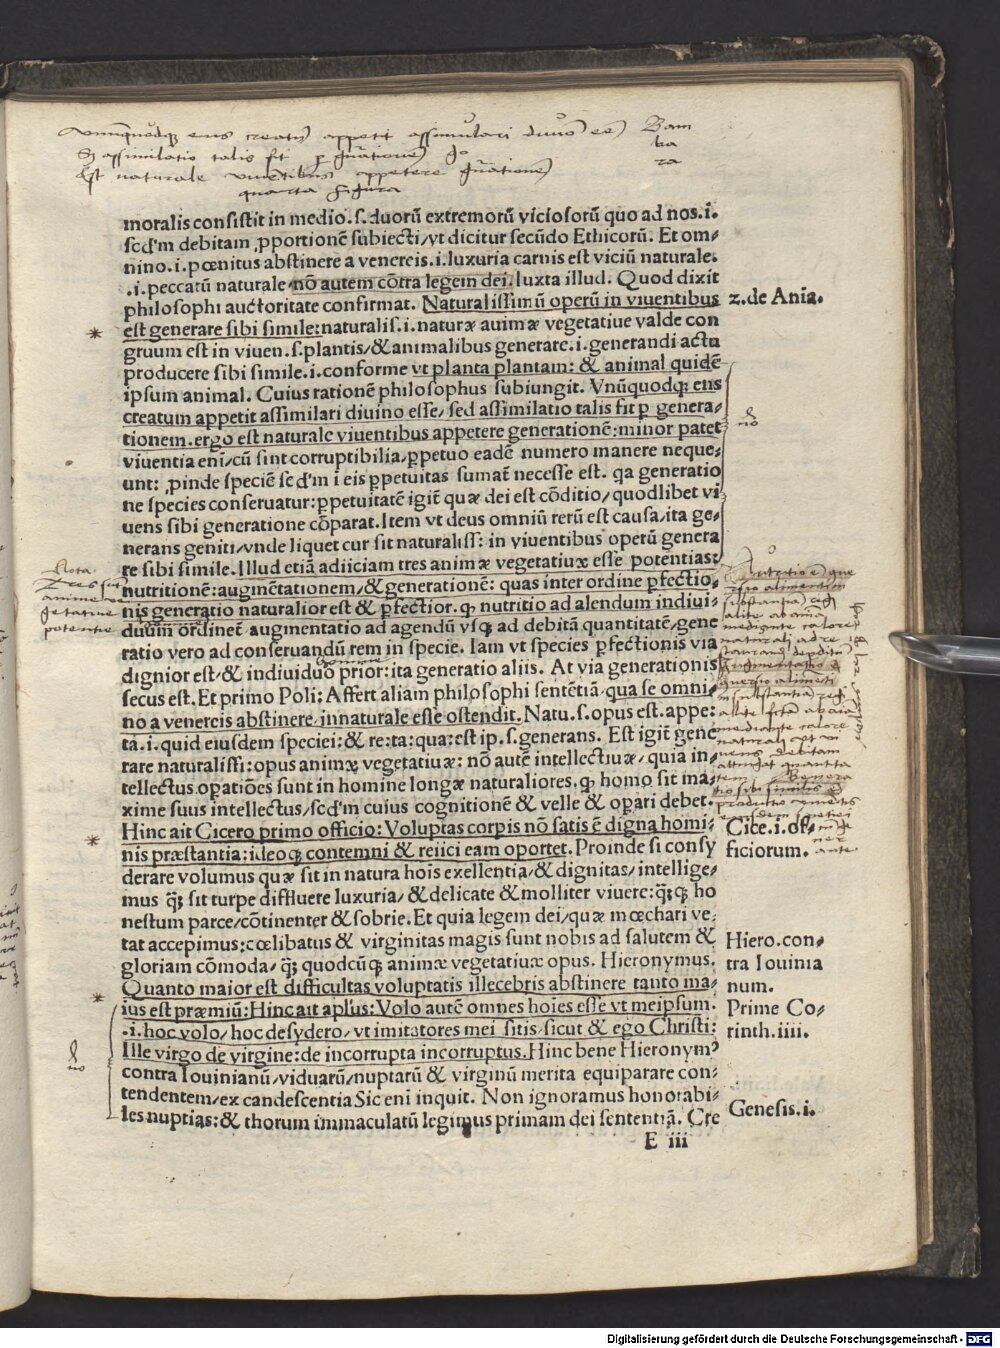 Vnumquodq; ens creatū appetit assimulari diuino eē Bam
S; assimilatio talis fit p gn̄ationē g° ba
Est naturale viuentibus appetere gn̄ationē ra
quarta figura
moralis consistit in medio.s.duorū extremorū viciosorū quo ad nos.i.
scd'm debitam ꝓportionē subiecti/vt dicitur secūdo Ethicorū. Et om⸗
nino.i.pœnitus abstinere a venereis.i.luxuria carnis est viciū naturale.
.i.peccatū naturale nō autem cōtra legem dei.Iuxta illud. Quod dixit
philosophi auctoritate confirmat. Naturalissimū operū in viuentibus
z.de Ania.
est generare sibi simile:naturalis.i.naturæ auimæ vegetatiue valde con
gruum est in viuen.s.plantis/& animalibus generare.i.generandi actu
producere sibi simile.i.conforme vt planta plantam: & animal quidē
ipsum animal. Cuius rationē philosophus subiungit. Vnūquodq; ens
creatum appetit assimilari diuino esse/sed assimilatio talis fit p genera⸗
tionem.ergo est naturale viuentibus appetere generationē:minor patet
viuentia eni/cū sint corruptibilia/ꝑpetuo eadē numero manere neque⸗
unt: ꝓinde speciē scd'm i eis ꝑpetuitas sumat̄ necesse est. qa generatio
ne species conseruatur:ꝑpetuitatē igit̄ quæ dei est cōditio/quodlibet vi
uens sibi generatione cōparat.Item vt deus omniū rerū est causa/ita ge⸗
nerans geniti/vnde liquet cur sit naturaliss: in viuentibus operū genera
re sibi simile.Illud etiā adiiciam tres animæ vegetatiuæ esse potentias:
nutritionē:augmētationem/& generationē: quas inter ordine ꝑfectio⸗
nis generatio naturalior est & ꝑfectior.ꝙ nutritio ad alendum indiui⸗
duum ordinet̄ augmentatio ad agendū vsq; ad debitā quantitatē/gene
ratio vero ad conseruandū rem in specie. Iam vt species ꝑfectionis via
dignior est/& indiuiduo prior:ita generatio aliis. At via generationis
secus est.Et primo Poli: Affert aliam philosophi sentētiā/qua se omni⸗
no a venereis abstinere/innaturale esse ostendit.Natu.s.opus est.appe:
ta.i.quid eiusdem speciei:& re:ta:qua:est ip.s.generans. Est igit̄ gene
rare naturalissi:opus animæ vegetatiuæ: nō autē intellectiuæ/quia in⸗
tellectus oꝑatiōes sunt in homine longæ naturaliores.ꝙ homo sit ma⸗
xime suus intellectus/scd'm cuius cognitionē & velle & oꝑari debet.
Hinc ait Cicero primo officio: Voluptas corpis nō satis ē digna homi⸗
Cice.i.of⸗
nis præstantia:ideoq; contemni & reiici eam oportet.Proinde si consy
ficiorum.
derare volumus quæ sit in natura hois exellentia/& dignitas/intellige⸗
mus q̄; sit turpe diffluere luxuria/ & delicate & molliter viuere:q̄;q; ho
nestum parce/cōtinenter & sobrie.Et quia legem dei/quæ mœchari ve⸗
tat accepimus:cœlibatus & virginitas magis sunt nobis ad salutem &
Hiero.con⸗
gloriam cōmoda/q̄; quodcūq; animæ vegetatiuæ opus. Hieronymus.
tra Iouinia
Quanto maior est difficultas voluptatis illecebris abstinere tanto ma⸗
num.
ius est præmiū:Hinc ait ap̄lus: Volo autē omnes hoies esse vt meipsum.
Prime Co⸗
.i.hoc volo/hoc desydero/vt imitatores mei sitis sicut & ego Christi:
rinth.iiii.
Ille virgo de virgine:de incorrupta incorruptus.Hinc bene Hieronymꝰ
contra Iouinianū/viduarū/nuptarū & virginū merita equiparare con⸗
tendentem/ex candescentia Sic eni inquit. Non ignoramus honorabi⸗
Genesis.i.
les nuptias:& thorum immaculatū legimus primam dei sententiā. Cre
E iii
Nota
Tres sūt
anime ve
getatiue
potentie
Digitalisierung gefördert durch die Deutsche Forschungsgemeinschaft - DFG